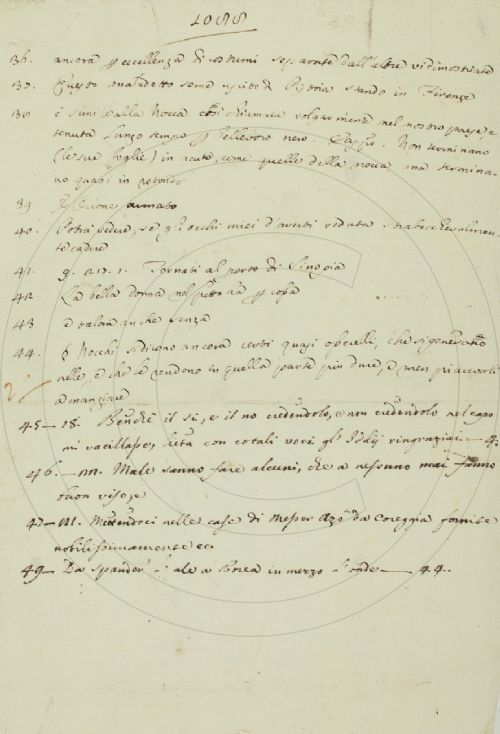 36. ancora p eccellenza di costumi separate dall'altre vidimostrate
37. Questo maladetto seme uscito di Pistoia stando in Firenze
38. è simile alla Rocca così chiamata volgarmente nel nostro paese e
tenuta lungo tempo p l'elleboro nero. Non terminano
(le sue foglie) in acuto, come quelle della rocca, ma termina-
no quasi in rotondo
39 armato
40. Potrà se gl'occhi miei d'averti veduta
te cadere
41. 9. Tornati al porto di
42 La bella donna nel p cosa
43 e talora anche senza
44. § Nocchi si dicono ancora certi quasi osserelli, che si generano
nelle e che le rendono in quella parte più dure, e men piacevoli
a mangiare
45 — 18. Benchè il si, e il no credendolo, e non credendolo nel capo
mi vacillasse, lieta con cotali voci gl'Iddij ringraziai — 4.
46. — m. Male sanno fare alcuni, che a nessuno mai fanno
buon viso, e
47 — nelle case di Messer Azo da Coreggia fornite
nobilissimamente ec.
49 — Da ale a Borea in mezzo l'onde — 44.